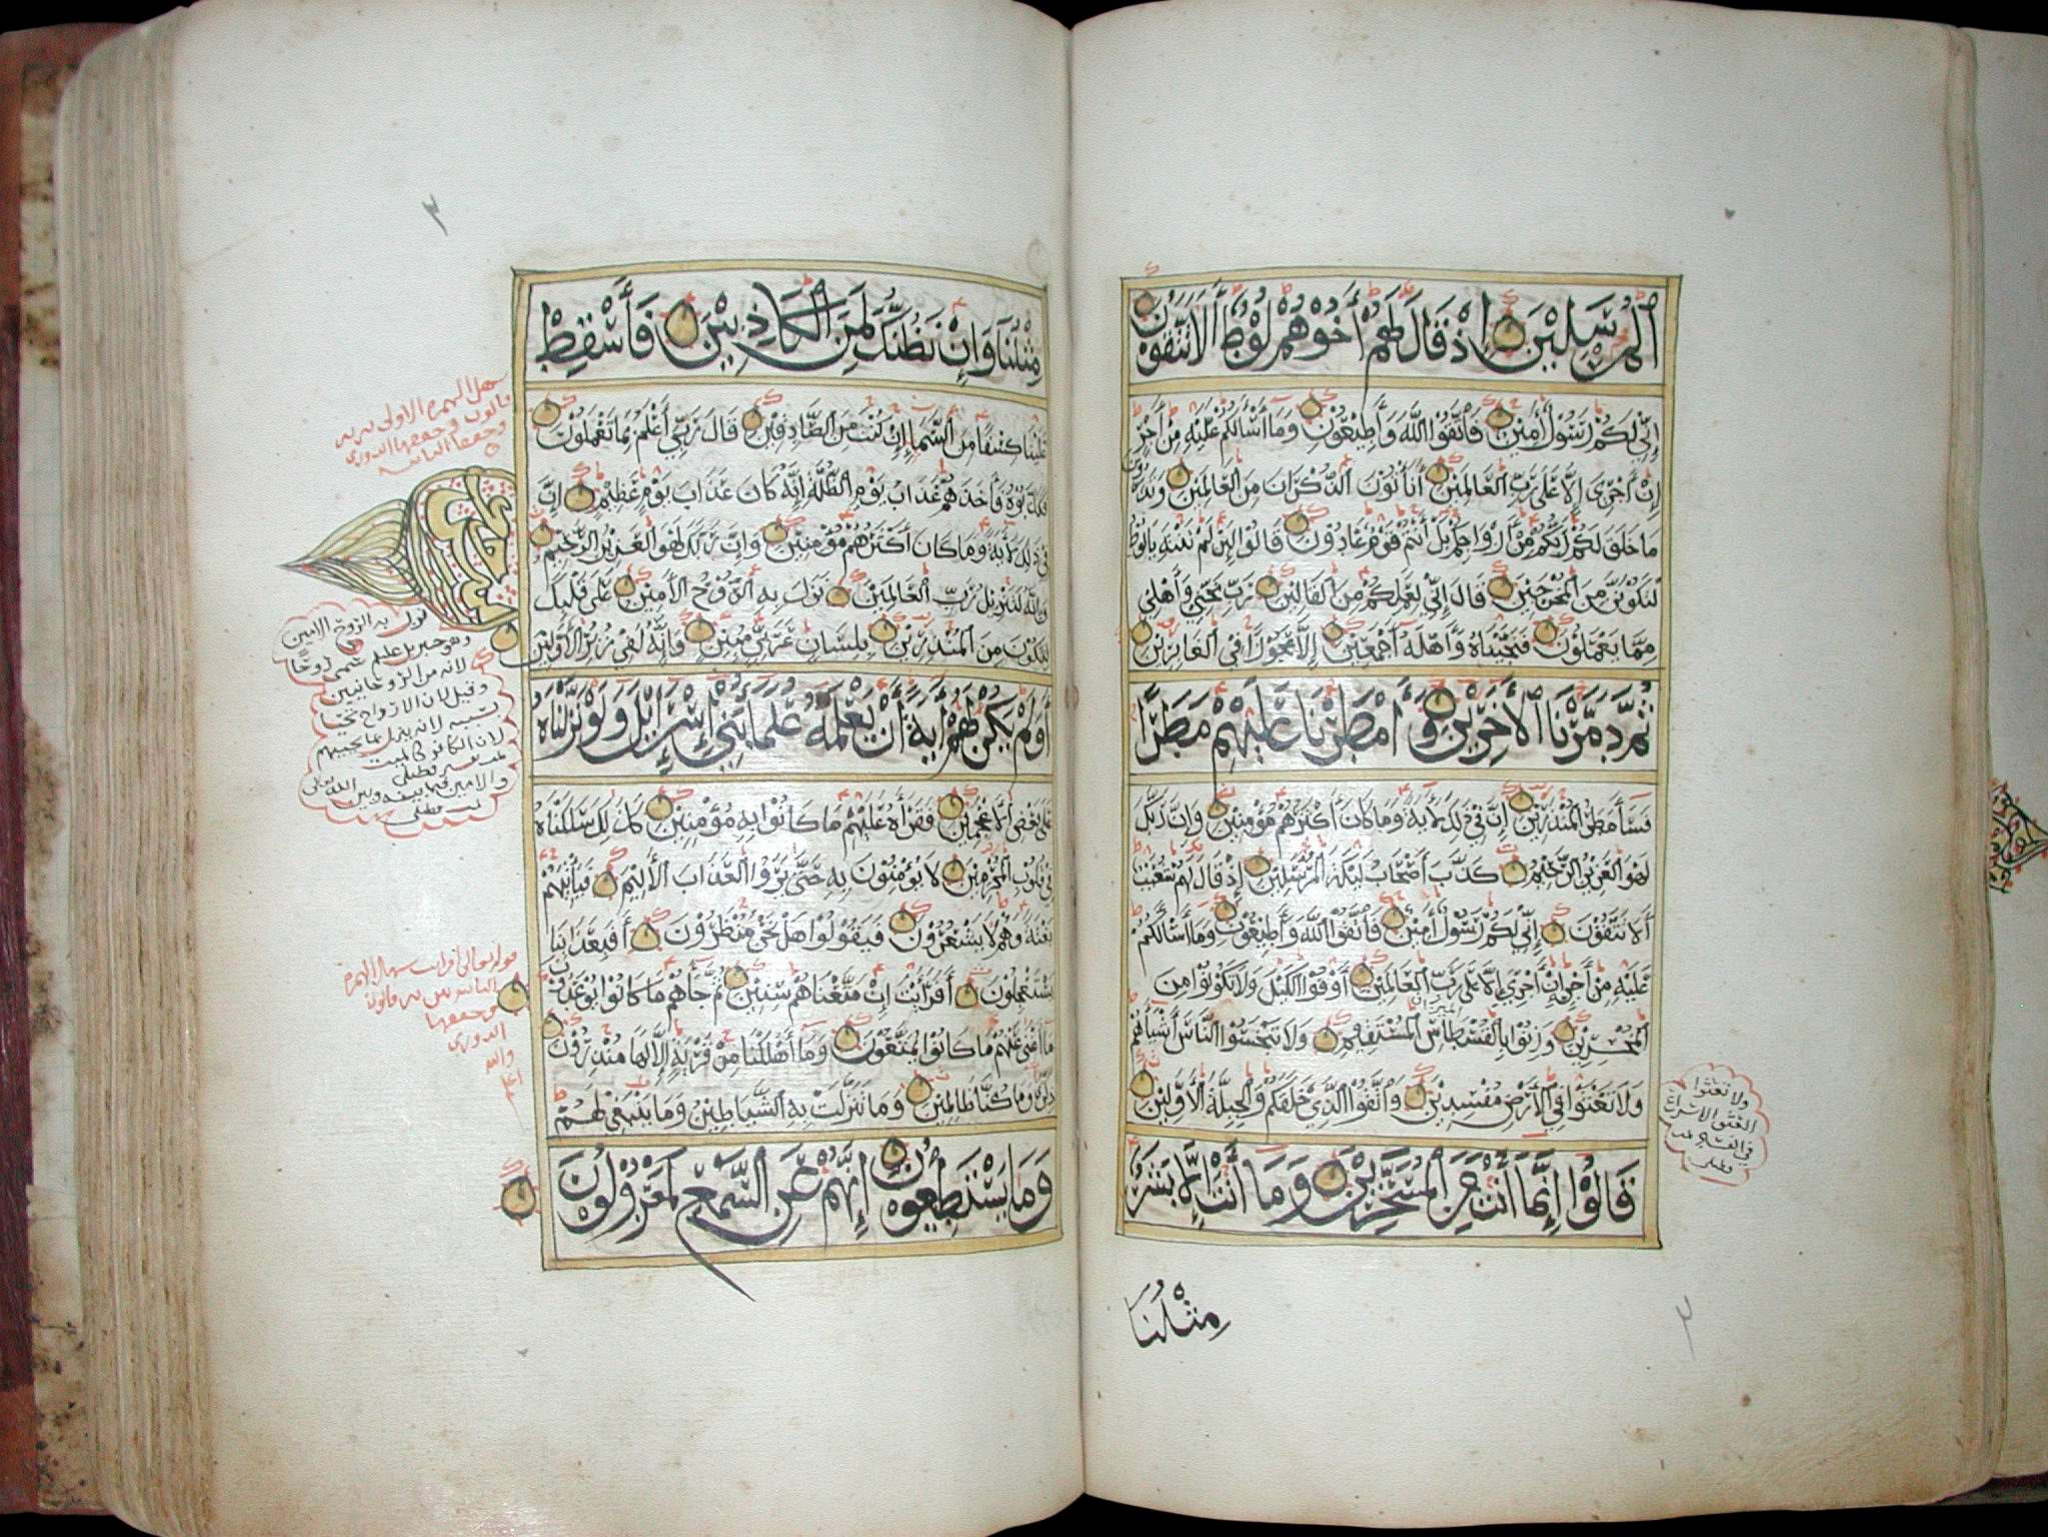 الْمُرْسَلِيْنَ إِذْ قَالَ لَهُمْ أَخُوْهُمْ لُوْطٌ أَلَا تَتَّقُوْنَ
إِنِّي لَكُمْ رَسُوْلٌ أَمِيْنٌ فَاتَّقُوا اللَّهَ وَأَطِيْعُوْنِ وَمَا أَسْأَلُكُمْ عَلَيْهِ مِنْ أَجْرٍ
إِنْ أَجْرِيَ إِلَّا عَلَى رَبِّ الْعَالَمِيْنَ أَتَأْتُوْنَ الذُّكْرَانَ مِنَ الْعَالَمِيْنَ وَتَذَرُوْنَ
مَا خَلَقَ لَكُمْ رَبُّكُمْ مِنْ أَزْوَاجِكُمْ بَلْ أَنْتُمْ قَوْمٌ عَادُوْنَ قَالُوا لَئِنْ لَمْ تَنْتَهِ يَالُوْطُ
لَتَكُوْنَنَّ مِنَ الْمُخْرَجِيْنَ قَالَ إِنِّي لِعَمَلِكُمْ مِنَ الْقَالِيْنَ رَبِّ نَجِّنِي وَأَهْلِي
مِمَّا يَعْمَلُوْنَ فَنَجَّيْنَاهُ وَأَهْلَهُ أَجْمَعِيْنَ إِلَّا عَجُوْزًا فِي الْغَابِرِيْنَ
ثُمَّ دَمَّرْنَا الْأَخَرِيْنَ وَأَمْطَرْنَا عَلَيْهِمْ مَطَرًا
فَسَاءَ مَطَرُ الْمُنْذَرِيْنَ إِنَّ فِي ذَلِكَ لَأَيَةً وَمَا كَانَ أَكْثَرُهُمْ مُؤْمِنِيْنَ وَإِنَّ رَبَّكَ
لَهُوَ الْعَزِيْزُ الرَّحِيْمُ كَذَّبَ أَصْحَابُ لَيْكَةَ الْمُرْسَلِيْنَ إِذْ قَالَ لَهُمْ شُعَيْبٌ
أَلَا تَتَّقُوْنَ إِنِّي لَكُمْ رَسُوْلٌ أَمِيْنٌ فَاتَّقُوا اللَّهَ وَأَطِيْعُوْنِ وَمَا أَسْأَلُكُمْ
عَلَيْهِ مِنْ أَجْرٍ إِنْ أَجْرِيَ إِلَّا عَلَى رَبِّ الْعَالَمِيْنَ أَوْفُوا الْكَيْلَ وَلَا تَكُوْنُوْا مِنَ
الْمُخْسِرِيْنَ وَزِنُوْا بِالْقُسْطَاسِ الْمُسْتَقِيْمِ وَلَا تَبْخَسُوا النَّاسَ أَشْيَاءَهُمْ
وَلَا تَعْثَوْا فِي الْأَرْضِ مُفْسِدِيْنَ وَاتَّقُوا الَّذِي خَلَقَكُمْ وَالْجِبِلَّةَ الْأَوَّلِيْنَ
قَالُوْا إِنَّمَا أَنْتَ مِنَ الْمُسَحَّرِيْنَ وَمَا أَنْتَ إِلَّا بَشَرٌ
مِثْلُنَا
ولا تعثوا
في
مِثْلُنَا وَإِنْ نَظُنُّكَ لَمِنَ الْكَاذِبِيْنَ فَأَسْقِطْ
عَلَيْنَا كِسَفًا مِنَ السَّمَاءِ إِنْ كُنْتَ مِنَ الصَّادِقِيْنَ قَالَ رَبِّي أَعْلَمُ بِمَا تَعْمَلُوْنَ
فَكَذَّبُوْهُ فَأَخَذَهُمْ عَذَابُ يَوْمِ الظُّلَّةِ إِنَّهُ كَانَ عَذَابَ يَوْمٍ عَظِيْمٍ إِنَّ
فِي ذَلِكَ لَأَيَةً وَمَا كَانَ أَكْثَرُهُمْ مُؤْمِنِيْنَ وَإِنَّ رَبَّكَ لَهُوَ الْعَزِيْزُ الرَّحِيْمُ
وَإِنَّهُ لَتَنْزِيْلُ رَبِّ الْعَالَمِيْنَ نَزَلَ بِهِ الرُّوْحُ الْأَمِيْنُ عَلَى قَلْبِكَ
لِتَكُوْنَ مِنَ الْمُنْذِرِيْنَ بِلِسَانٍ عَرَبِيٍّ مُبِيْنٍ وَإِنَّهُ لَفِي زُبُرِ الْأَوَّلِيْنَ
أَوَلَمْ يَكُنْ لَهُمْ أَيَةً أَنْ يَعْلَمَهُ عُلَمَاءُ بَنِي إِسْرَائِيْلَ وَلَوْ نَزَّلْنَاهُ
عَلَى بَعْضِ الْأَعْجَمِيْنَ فَقَرَأَهُ عَلَيْهِمْ مَا كَانُوْا بِهِ مُؤْمِنِيْنَ كَذَلِكَ سَلَكْنَاهُ
فِي قُلُوْبِ الْمُجْرِمِيْنَ لَا يُؤْمِنُوْنَ بِهِ حَتَّى يَرَوُا الْعَذَابَ الْأَلِيْمَ فَيَأْتِيَهُمْ
بَغْتَةً وَهُمْ لَا يَشْعُرُوْنَ فَيَقُوْلُوْا هَلْ نَحْنُ مُنْظَرُوْنَ أَفَبِعَذَابِنَا
يَسْتَعْجِلُوْنَ أَفَرَأَيْتَ إِنْ مَتَّعْنَاهُمْ سِنِيْنَ ثُمَّ جَاءَهُمْ مَا كَانُوْا يُوْعَدُوْنَ
مَا أَغْنَى عَنْهُمْ مَا كَانُوْا يُمَتَّعُوْنَ وَمَا أَهْلَكْنَا مِنْ قَرْيَةٍ إِلَّا لَهَا مُنْذِرُوْنَ
ذِكْرَى وَمَا كُنَّا ظَالِمِيْنَ وَمَا تَنَزَّلَتْ بِهِ الشَّيَاطِيْنُ وَمَا يَنْبَغِي لَهُمْ
وَمَا يَسْتَطِيْعُوْنَ إِنَّهُمْ عَنِ السَّمْعِ لَمَعْزُوْلُوْنَ
نزل به الروح الامين
وهو جبريل عليه سمي روحًا
لانه من الروحانيين
وقيل لان الارواح تحيا